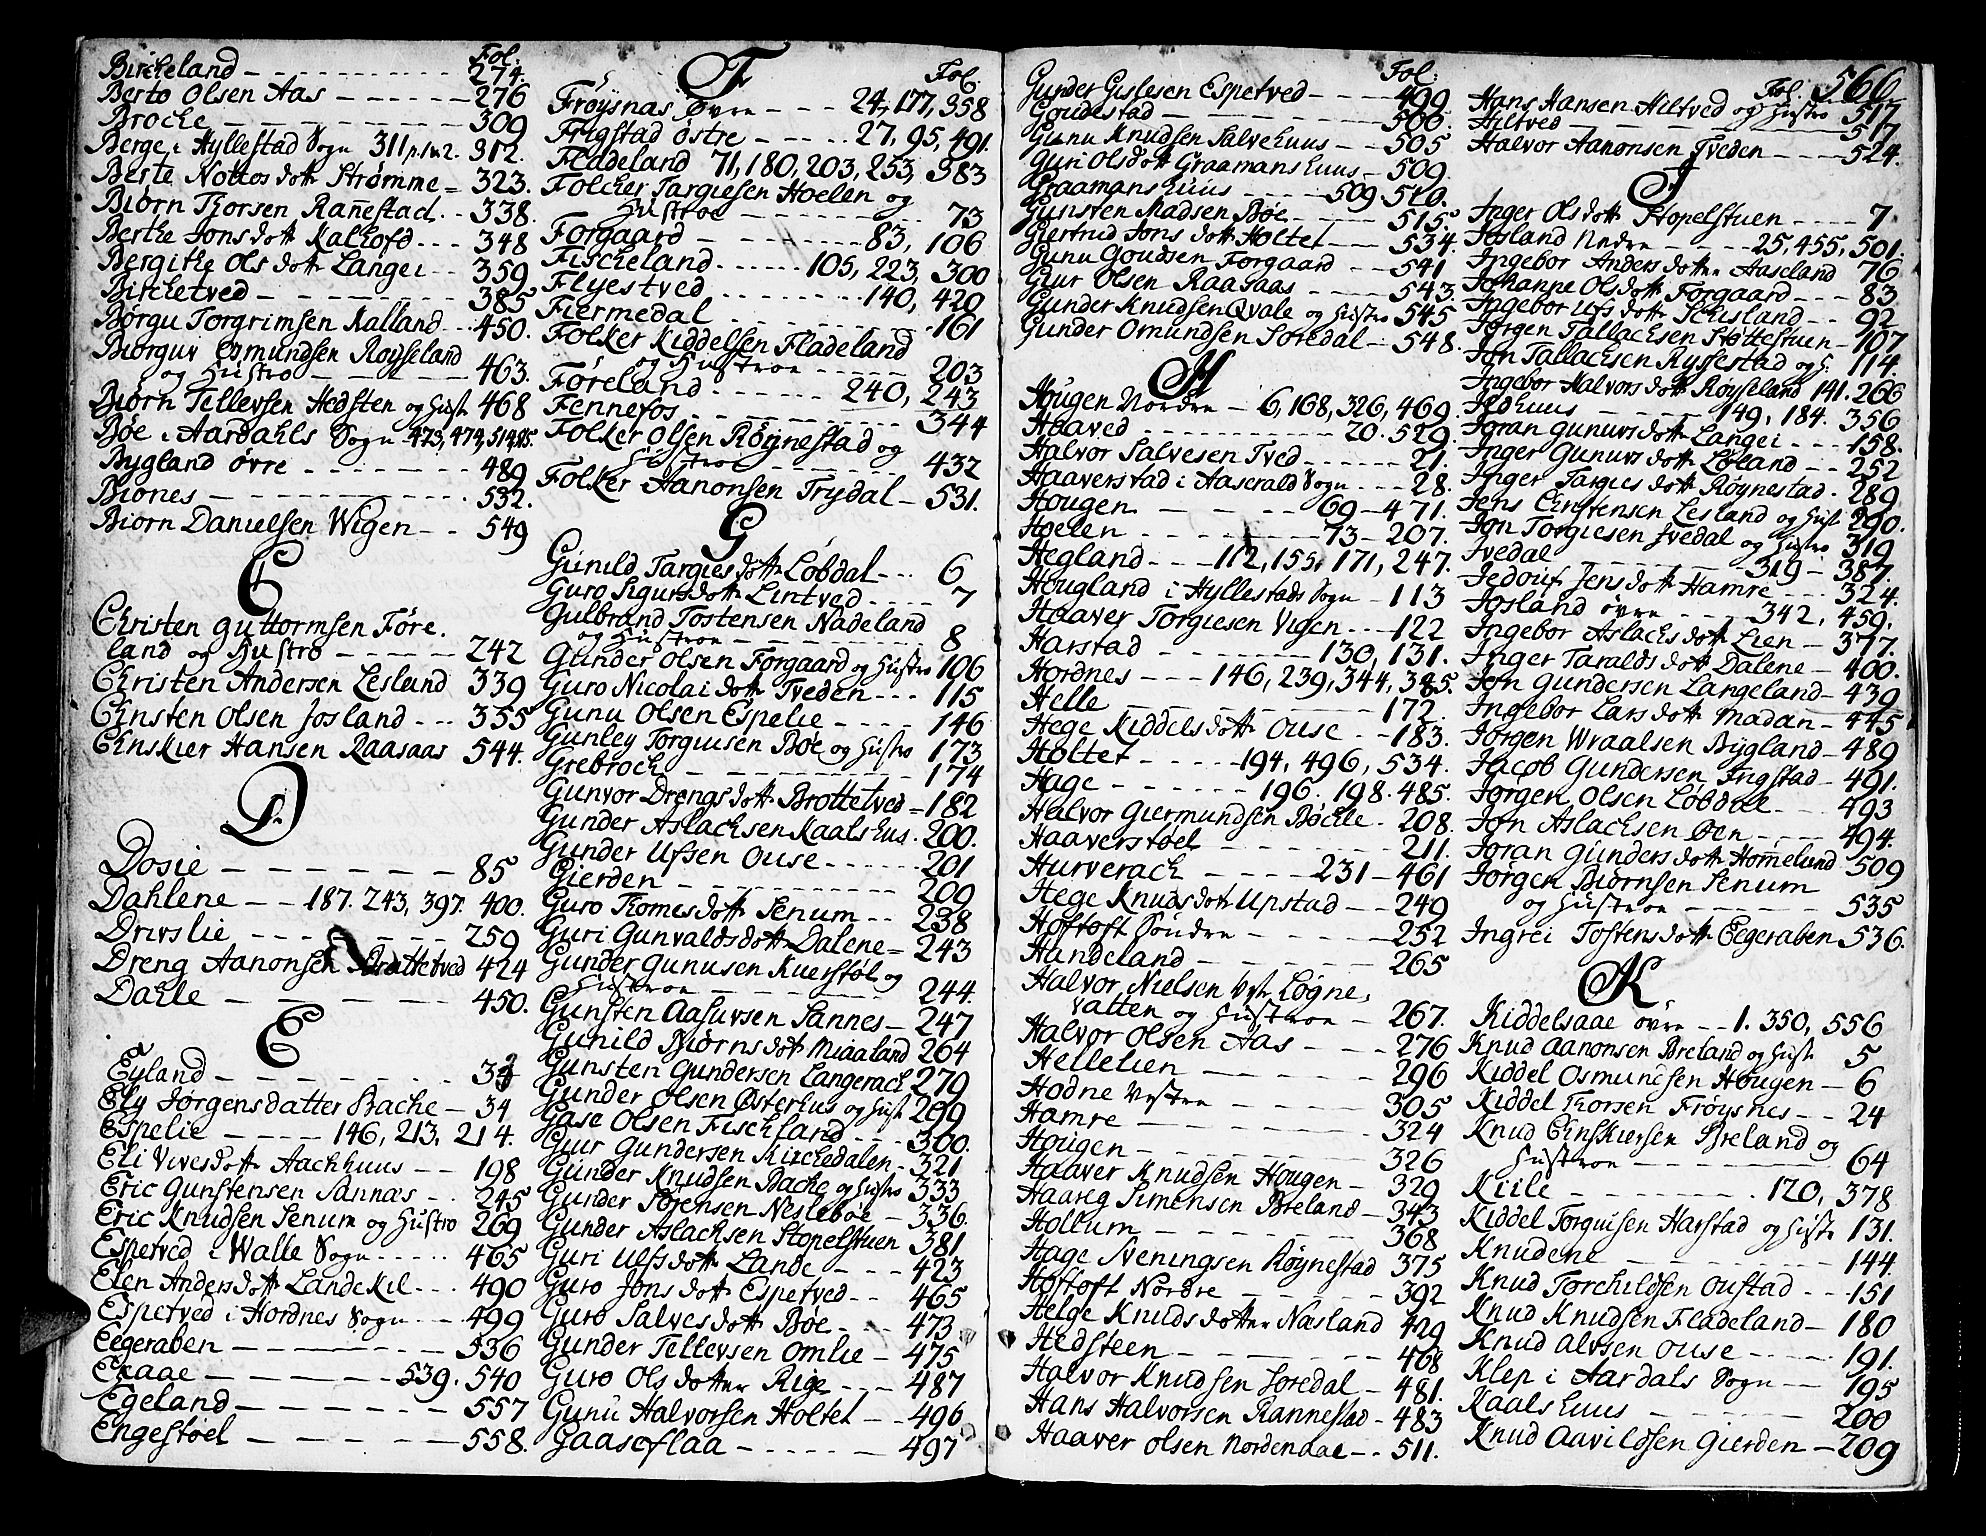 Fol.
Bircheland - - - 274.
Berto Olsen Aas - - - 276
Broche - - - 309
Berge i Hyllestad Sogn 311 p. 1 a 2. 312.
Berte Nottos dotter Strømme - 323.
Biørn Thorsen Ranestad - - 338.
Berthe Jons dotter Kalhofd - - - 348
Bergithe Ols dotter Langei - - 359
Birchetved - - - 385
Børgu Torgrimsen Kalland - - 450.
Biørguv Osmundsen Røyseland
og Hustro - - - 463.
Biørn Tellevsen Hedsten og Hust 468
Bøe i Aardahls Sogn 473, 474, 514, 515.
Bygland øvre - - - 489
Biones - - - 532.
Biørn Danielsen Wigen - - 549
C
Christen Guttormsen Føre.
land og Hustro - - - 242
Christen Andersen Lesland 339
Christen Olsen Josland - - - 355
Chriskier Hansen Raasaas 544.
D
Dosie - - - 85
Dahlene - - 187. 243, 397. 400.
Drivslie - - - 259
Dreng Aanonsen Brottetved 424
Dahle - - - 450.
E
Eyland - - - 34
Ely Jørgensdatter Bache - 34
Espelie - - - 146, 213, 214.
Eli Vivesdotter Aachhuus - - 198
Eric Gunstensen Sannæs - - 245
Eric Knudsen Senum og Hustro 269
Espetved i Walle Sogn - - - 465
Elen Anders dotter Landekil - - 490
Espetved i Hordnes Sogn - - 499
Eegeraben - - - 536
Exaae - - - 539. 540
Egeland - - - 557
Engestøel - - - 558.
F
Fol.
Frøysnas øvre - - - 24, 177, 358
Frigstad østre - - - 27, 95, 491.
Fladeland 71, 180, 203, 253, 383
Folcher Targiesen Hoelen og
Hustroe - - - 73
Forgaard - - - 83, 106
Fischeland - - - 105, 223, 300
Flyestved - - - 140, 420
Fiermedal - - - 161
Folker Kiddelsen Fladeland
og Hustroe - - - 203
Føreland - - - 240, 243
Fennefos - - - 344
Folker Olsen Rønnestad og
Hustroe - - - 432
Folker Aanonsen Trydal - 531.
G
Gunild Targies dotter Løbdal - - 6
Guro Sigurs dotter Lintved - - - 7
Gulbrand Tostensen Nadeland
og Hustroe - - - 8
Gunder Olsen Forgaard og Hustro 106
Guro Nicolai dotter Tveden - - - 115
Gunu Olsen Espelie - - - 146
Gunley Torguisen Bøe og Hustro 173
Grebroch - - - 174
Gunvor Drengs dotter Brottetved - 182
Gunder Aslachsen Kaalshus. 200.
Gunder Ufsen Ouse - - - 201
Gierden - - - 209
Guro Thomes dotter Senum - - 238
Guri Gunvalds dotter Dalene - 243
Gunder Gunusen Kuerstøl og
Hustroe - - - 244.
Gunsten Aasuvsen Sannes - 247
Gunild Biørns dotter Miaaland 264
Gunsten Gundersen Langerach 279
Gunder Olsen Østerhus og Hust 299
Gase Olsen Fischland - - - 300.
Guir Gundersen Kirchedalen - 321
Gunder Knudsen Bache og Hustro 333
Gunder Sørensen Neslebøe - 336.
Gunder Aslachsen Stopelstuen 381
Guri Ulfs dotter Lande - - - 423
Guro Jons dotter Espetved - - 465
Guro Salves dotter Bøe - - - 473
Gunder Tellevsen Omlie - 475
Guro Ols dotter Rige - - - 487
Gunu Halvorsen Holtet - - 496
Gaaseflaa - - - 497
566
Fol.
Gunder Gislesen Espetved - - 499
Goudestad - - - 500
Gunu Knudsen Salvehuus - - 505
Guri Olsdotter Graamanshuus - 509.
Graamanshuus - - - 509. 510.
Gunsten Madsen Bøe - - - 515.
Giertrid Jons dotter Holtet - - 534.
Gunu Goudsen Forgaard - - 541
Giur Olsen Raasaas - - - 543.
Gunder Knudsen Qvale og Hustro 545
Gunder Omundsen Soredal - 548.
H
Hougen Nordre - 6, 168, 326, 469.
Haaved - - - 20. 529.
Halvor Salvesen Tved - - - 21.
Haaverstad i Aaserald Sogn - - 28.
Hougen - - - 69 - 471.
Hoelen - - - 73 - 207.
Hegland - - - 112, 155, 171, 247.
Hougland i Hyllestads Sogn - 113
Haaver Torgiesen Vigen - - - 122
Harstad - - - 130, 131.
Hordnes - - - 146, 239, 344, 385.
Helle - - - 172.
Hege Kiddels dotter Ouse - - 183.
Holtet - - - 194, 496, 534.
Hage - - - 196. 198. 485.
Halvor Giermundsen Bøchle - 208.
Haaverstøel - - - 211.
Hurverach - - - 231 - 461
Hege Knuds dotter Upstad - - 249
Hoftoft Søndre - - - 252
Handeland - - - 265
Halvor Nielsen Vestr Løgne,
vatten og Hustroe - - 267.
Halvor Olsen Aas - - - 276
Hellelien - - - 296
Hodne Vestre - - - 305
Hamre - - - 324
Hougen - - - 326
Haaver Knudsen Hougen - 329
Haaveg Simensen Breland - 343
Hollum - - - 368
Hage Sveningsen Røynestad 375
Hoftoft Nordre - - - 392
Helge Knuds dotter Nasland 429
Hedsteen - - - 468
Halvor Knudsen Soredal - 481.
Hans Halvorsen Rannestad - 483
Haaver Olsen Nordendal - - 511.
Fol.
Hans Hansen Hiltved og Hustro 517
Hiltved - - - 517.
Halvor Aanonsen Tveden - - - 524.
J
Inger Ols dotter Stopelstuen - - - 7.
Josland Nedre - - - 25, 455, 501.
Ingebor Anders dotter Aaseland 76
Johanne Ols dotter Forgaard - - - 83
Ingebor Ufs dotter Schisland - - 92
Jørgen Tallachsen Støttestuen - 107
Jon Tallachsen Ryssestad og H. 114.
Ingebor Halvors dotter Røyseland 141. 266
Jedhuus - - - 149, 184. 356
Joran Gunuvs dotter Langei - - - 158.
Inger Gunuvs dotter Løland - - 252
Inger Targies dotter Røynestad. 289
Jens Christensen Lesland og Hust 290.
Jon Torgiesen Ivedal og Hustro 319
Ivedal - - - 319 - 387.
Jedouf Jens dotter Hamre - - - 324.
Josland øvre - - - 342, 459,
Ingebor Aslachs dotter Lien - 377.
Inger Taralds dotter Dalene - 400.
Jon Gundersen Langeland - 439
Ingebor Lars dotter Madan - 445
Jørgen Wraalsen Bygland - 489
Jacob Gundersen Frigstad - 491.
Jørgen Olsen Løbdal - - - 493
Jon Aslachsen Øen - - - 494.
Joran Gunders dotter Homelund 509
Jørgen Biørnsen Senum
og Hustroe - - - 535
Ingrei Tostens dotter Eegeraben 536.
K
Kiddelsaae øvre - - 1. 350, 556
Knud Aanonsen Breland og Hust 5
Kiddel Osmundsen Hougen - 6
Kiddel Thorsen Frøysnes - - 24
Knud Chriskiersen Breland og
Hustroe - - - 64
Kiile - - - 120, 378
Kiddel Torguisen Harstad og Hustr 131.
Knudene - - - 144
Knud Torchildsen Oustad - - - 151
Knud Knudsen Fladeland - 180
Knud Alvsen Ouse - - - 191.
Klep i Aardals Sogn - - - 195
Kaalshuus - - - 200
Knud Aavildsen Gierden - 209